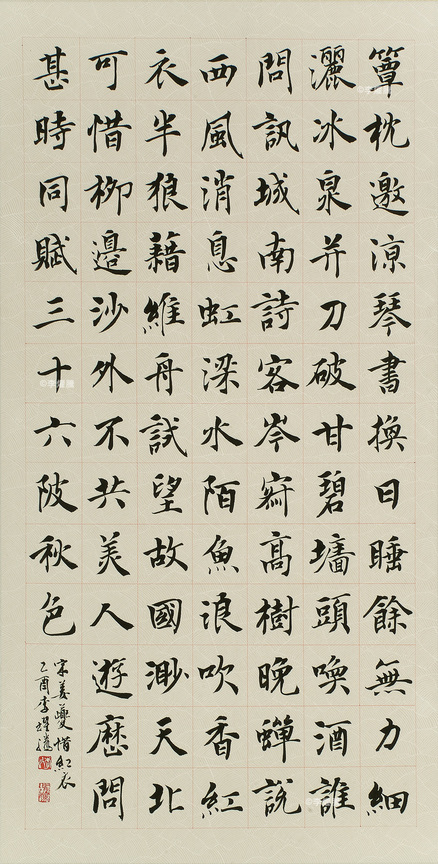 簟枕邀涼琴書換日睡餘無力細
灑冰泉并刀破甘碧墻頭喚酒誰
問訊城南詩客岑寂高樹晚蟬說
西風消息虹梁水陌魚浪吹香紅
衣半狼藉維舟試望故國渺天北
可惜柳邊沙外不共美人遊歷問
甚時同賦三十六陂秋色
宋姜夔惜紅衣
乙酉李耀